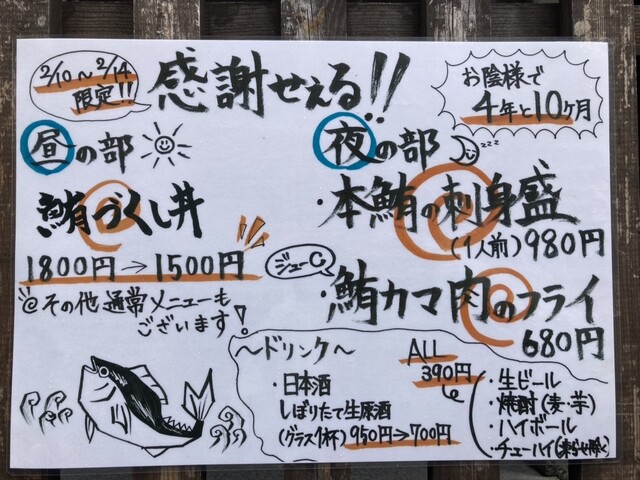 2/10～2/14
限定!!
感謝せえる!!
お陰様で
4年と10ヶ月
昼の部
鮪づくし丼
1800円→1500円
@その他通常メニューも
ございます!
夜の部
zzz
・本鮪の刺身盛
(1人前)980円
ジューC
・鮪カマ肉のフライ
680円
～ドリンク～
・日本酒
しぼりたて生原酒
(グラス1杯)950円→700円
ALL
390円
・生ビール
・焼酎(麦・芋)
・ハイボール
・チューハイ